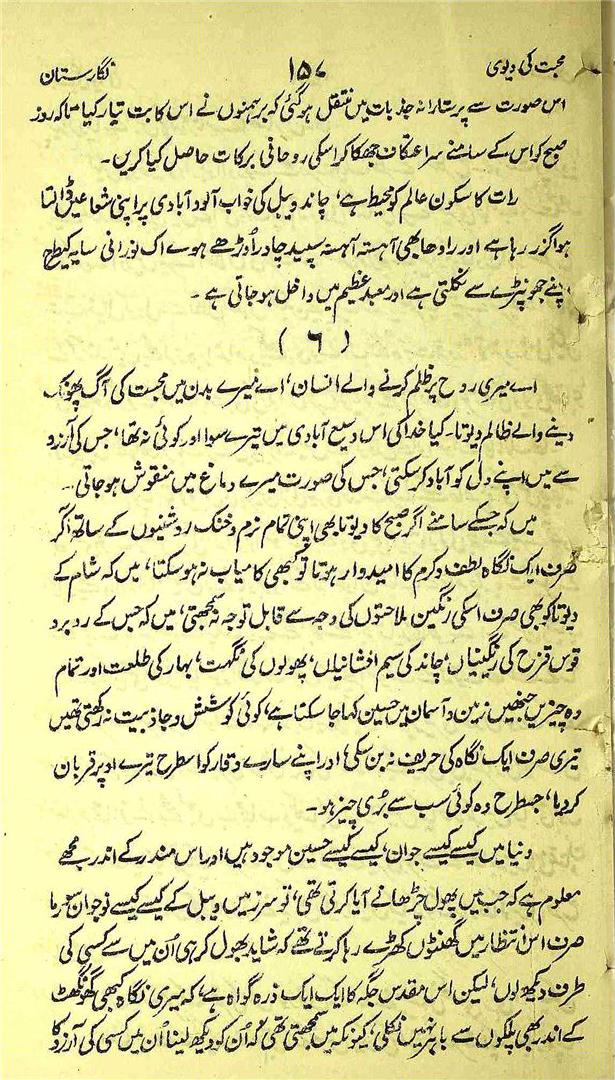 محبت کی دیوی ۱۵۷ نگارستان
اس صورت سے پرستارانہ جذبات میں منتقل ہوگئی کہ برہمنوں نے اس کا بت تیار کیا تاکہ روز
صبح کو اس کے سامنے سر اعتکاف جھکا کر اسکی روحانی برکات حاصل کیا کریں۔
رات کا سکون عالم کو محیط ہے، چاند ویبل کی خواب آلود آبادی پر اپنی شعاعیں ڈالتا
ہوا گزر رہا ہے اور رادھا بھی آہستہ آہستہ سپید چادر اوڑھے ہوے اک نورانی سایہ کیطرح
اپنے جھونپڑے سے نکلتی ہے اور معبد عظیم میں داخل ہو جاتی ہے۔
(۶)
اے میری روح پر ظلم کرنے والے انسان، اے میرے بدن میں محبت کی آگ پھونک
دینے والے ظالم دیوتا۔ کیا خدا کی اس وسیع آبادی میں تیرے سوا اور کوئی نہ تھا، جس کی آرزو
سے میں اپنے دل کو آباد کر سکتی، جس کی صورت میرے دماغ میں منقوش ہو جاتی۔
میں کہ جسکے سامنے اگر صبح کا دیوتا بھی اپنی تمام نرم و خنک روشنیوں کے ساتھ آکر
صرف ایک نگاہ لطف و کرم کا امیدوار ہوتا تو کبھی کامیاب نہ ہو سکتا، میں کہ شام کے
دیوتا کو بھی صرف اسکی رنگین ملاحتوں کی وجہ سے قابل توجہ نہ سمجھتی، میں کہ جس کے روبرو
قوس قزح کی رنگینیاں، چاند کی سیم افشانیاں، پھولوں کی نگہت، بہار کی طلعت اور تمام
وہ چیزیں جنھیں زمین و آسمان میں حسین کہا جا سکتا ہے، کوئی کوشش و جاذبیت نہ رکھتی تھیں
تیری صرف ایک نگاہ کی حریف نہ بن سکی، اور اپنے سارے وقار کو اسطرح تیرے اوپر قربان
کر دیا، جسطرح وہ کوئی سب سے بُری چیز ہو۔
دنیا میں کیسے کیسے جوان، کیسے کیسے حسین موجود ہیں اور اس مندر کے اندر مجھے
معلوم ہے کہ جب میں پھول چڑھانے آیا کرتی تھی، تو سرزمین ویبل کے کیسے کیسے نوجوان سورما
صرف اس انتظار میں گھنٹوں کھڑے رہا کرتے تھے کہ شاید بھول کر ہی اُن میں سے کسی کی
طرف دیکھ لوں، لیکن اس مقدس جگہ کا ایک ایک ذرہ گواہ ہے، کہ میری نگاہ کبھی گھونگھٹ
کے اندر بھی پلکوں سے باہر نہیں نکلی، کیونکہ میں سمجھتی تھی کہ اُن کو دیکھ لینا اُن میں کسی کی آرزو کا